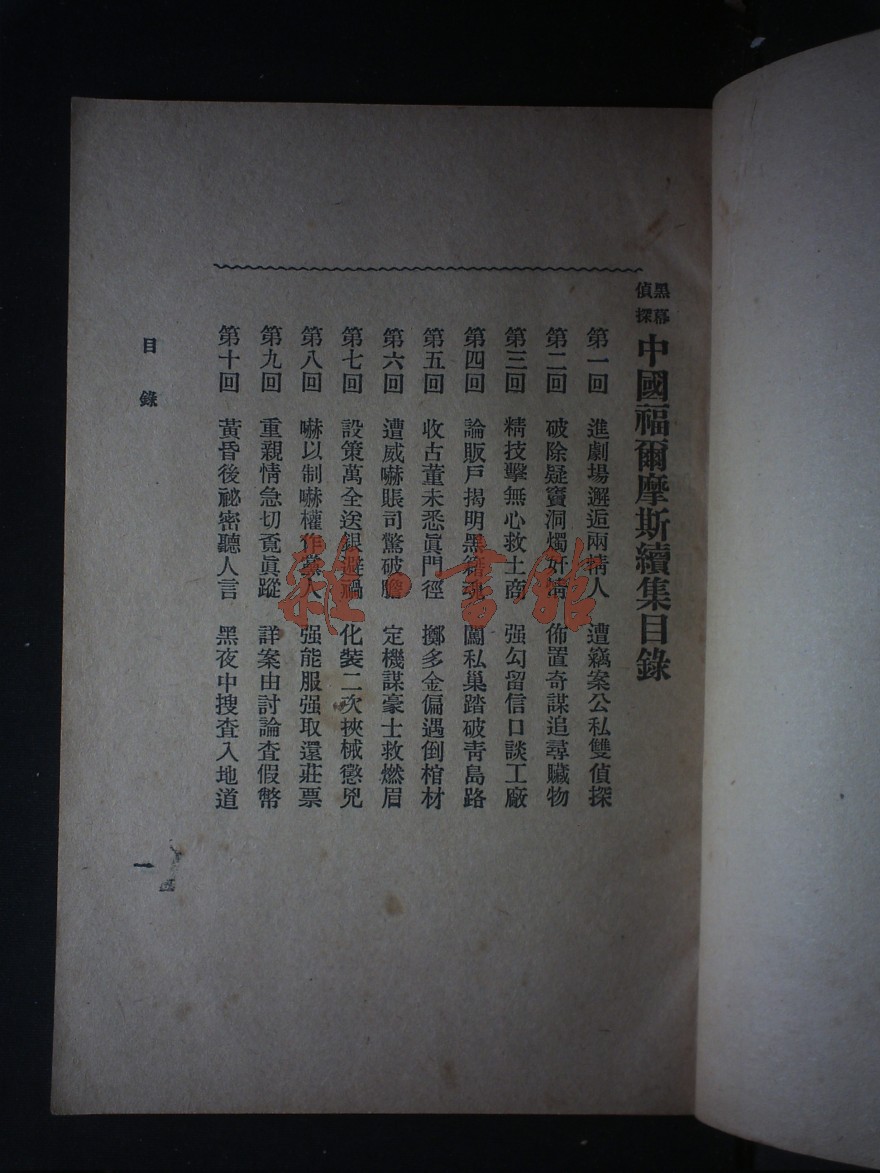 黑幕偵探 中國福爾摩斯續集目錄
第一回 進劇場邂逅兩情人 遭竊案公私雙偵探
第二回 破除疑竇洞燭奸情 佈置奇謀追尋贓物
第三回 精技擊無心救土商 强勾留信口談工廠
第四回 論販戶揭明黑籍魂 闖私巢踏破靑島路
第五回 收古董未悉眞門徑 擲多金偏遇倒棺材
第六回 遭威嚇賬司驚破膽 定機謀豪士救燃眉
第七回 設策萬全送銀避禍 化裝二次挾械懲兇
第八回 嚇以制嚇權作黨人 强能服强取還莊票
第九回 重親情急切覓眞蹤 詳案由討論査假幣
第十回 黃昏後祕密聽人言 黑夜中搜査入地道
目錄
一
雜·書館